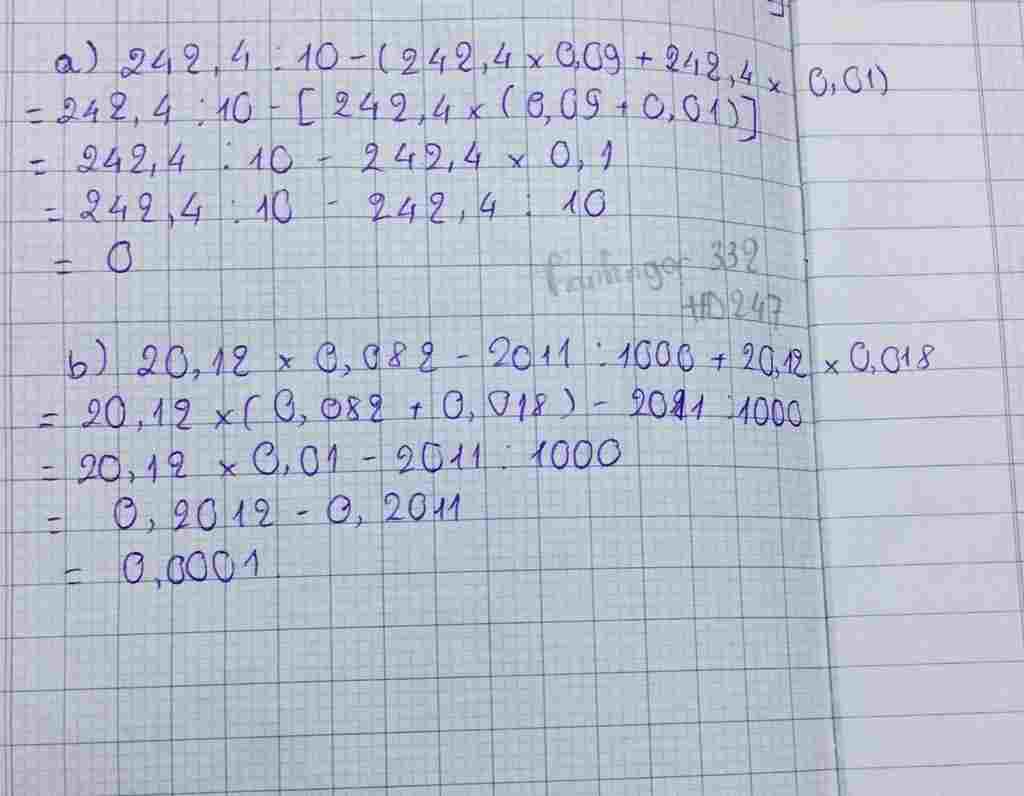 a) 242,4 : 10 - (242,4 x 0,09 + 242,4 x 0,01)
= 242,4 : 10 - [242,4 x (0,09 + 0,01)]
= 242,4 : 10 - 242,4 x 0,1
= 242,4 : 10 - 242,4 : 10
= 0
332
247
b) 20,12 x 0,082 - 2011 : 1000 + 20,12 x 0,018
= 20,12 x (0,082 + 0,018) - 2011 : 1000
= 20,12 x 0,01 - 2011 : 1000
= 0,2012 - 0,2011
= 0,0001